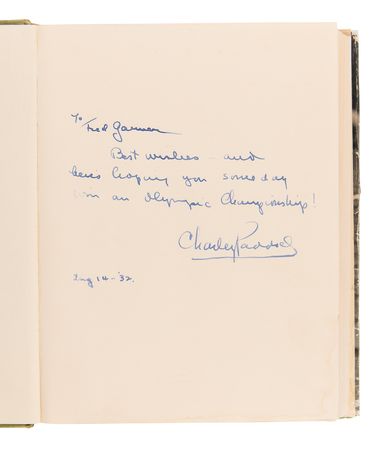 To
Fred Garner
Best wishes – and
heres hoping you some day
win an Olympic Championship!
Charley Paddock
Aug 14 - '32.